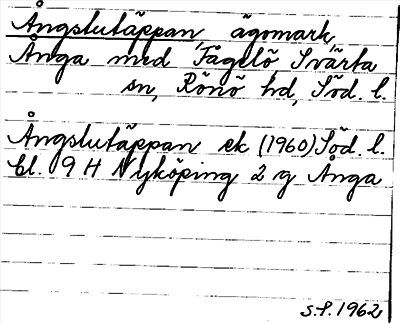 Ångslutäppan, ägomark,
Ånga med Fågelö, Svärta
sn, Rönö hd, Söd. l.
Ångslutäppan ek (1960) Söd. l.
bl. 9 H Nyköping 2 g Ånga
s.f. 1962